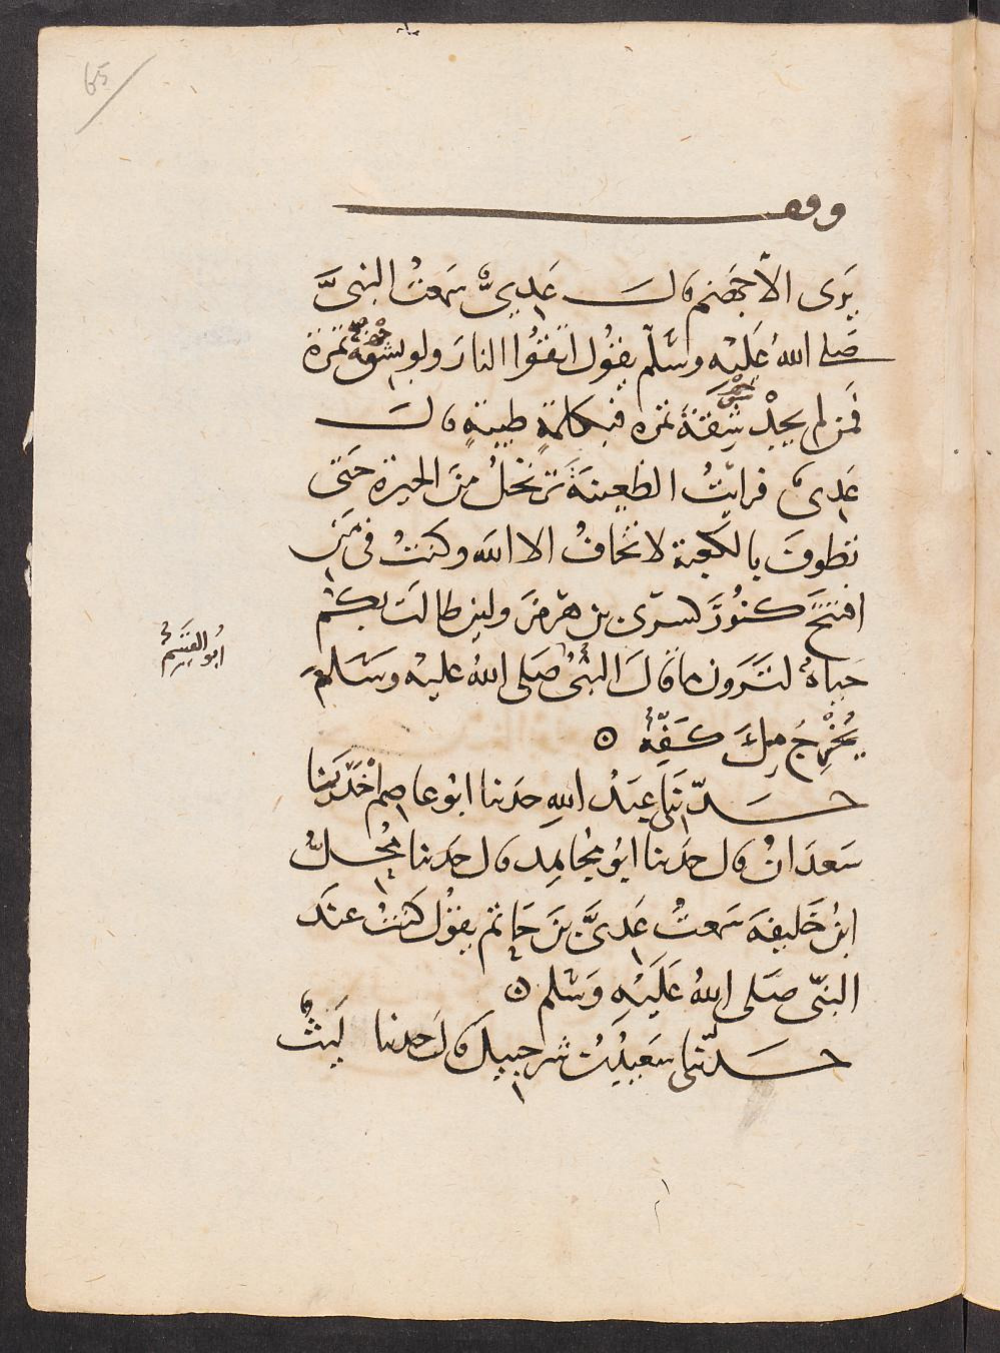 65
وقف
يَرَى الّا جَهنم قالَ عَدِيٌّ سَمعتُ النبيَّ
صَلى اللهُ عَليْه وسَلّم يقوُل اتقوُا النارَ ولو بشقهِ تمرة
فَمن لم يجِدْ شِقّةَ تمره فبكلمةٍ طيبةٍ قالَ
عَدِى فرايْتُ الظعِينَةَ ترتحلُ منَ الحيرة حَتى
تطوفَ بالكعَبة لا تخافُ الا الله وكنتُ فى مَن
افتتَحَ كنُوزَ كسرى بن هرمزَ ولين طالتْ بكم
حَياهٌ لتَرَون ما قالَ النبىُّ صَلى اللهُ عليْه وسَلمَ
ابُو القسَم
يُخْرِجُ مِلَ كَفّهِ ه
حَدّثنى عبَدُ اللهِ حدَثنا ابوُ عاصِم اخْبَرَنا
سَعدَانُ قال حدَثنا ابوُ مجَاهِد قال حدَثنا مُحِلُّ
ابنُ خَليفهَ سَمعتُ عَدىَّ بنَ حَاتم يقوُل كنتُ عندَ
النبّى صَلى اللهُ عَلَيْهِ وَسَلم ه
حَدّثنى سَعيدُ بنُ شرحبيلَ قالَ حدثنا لَيثٌ